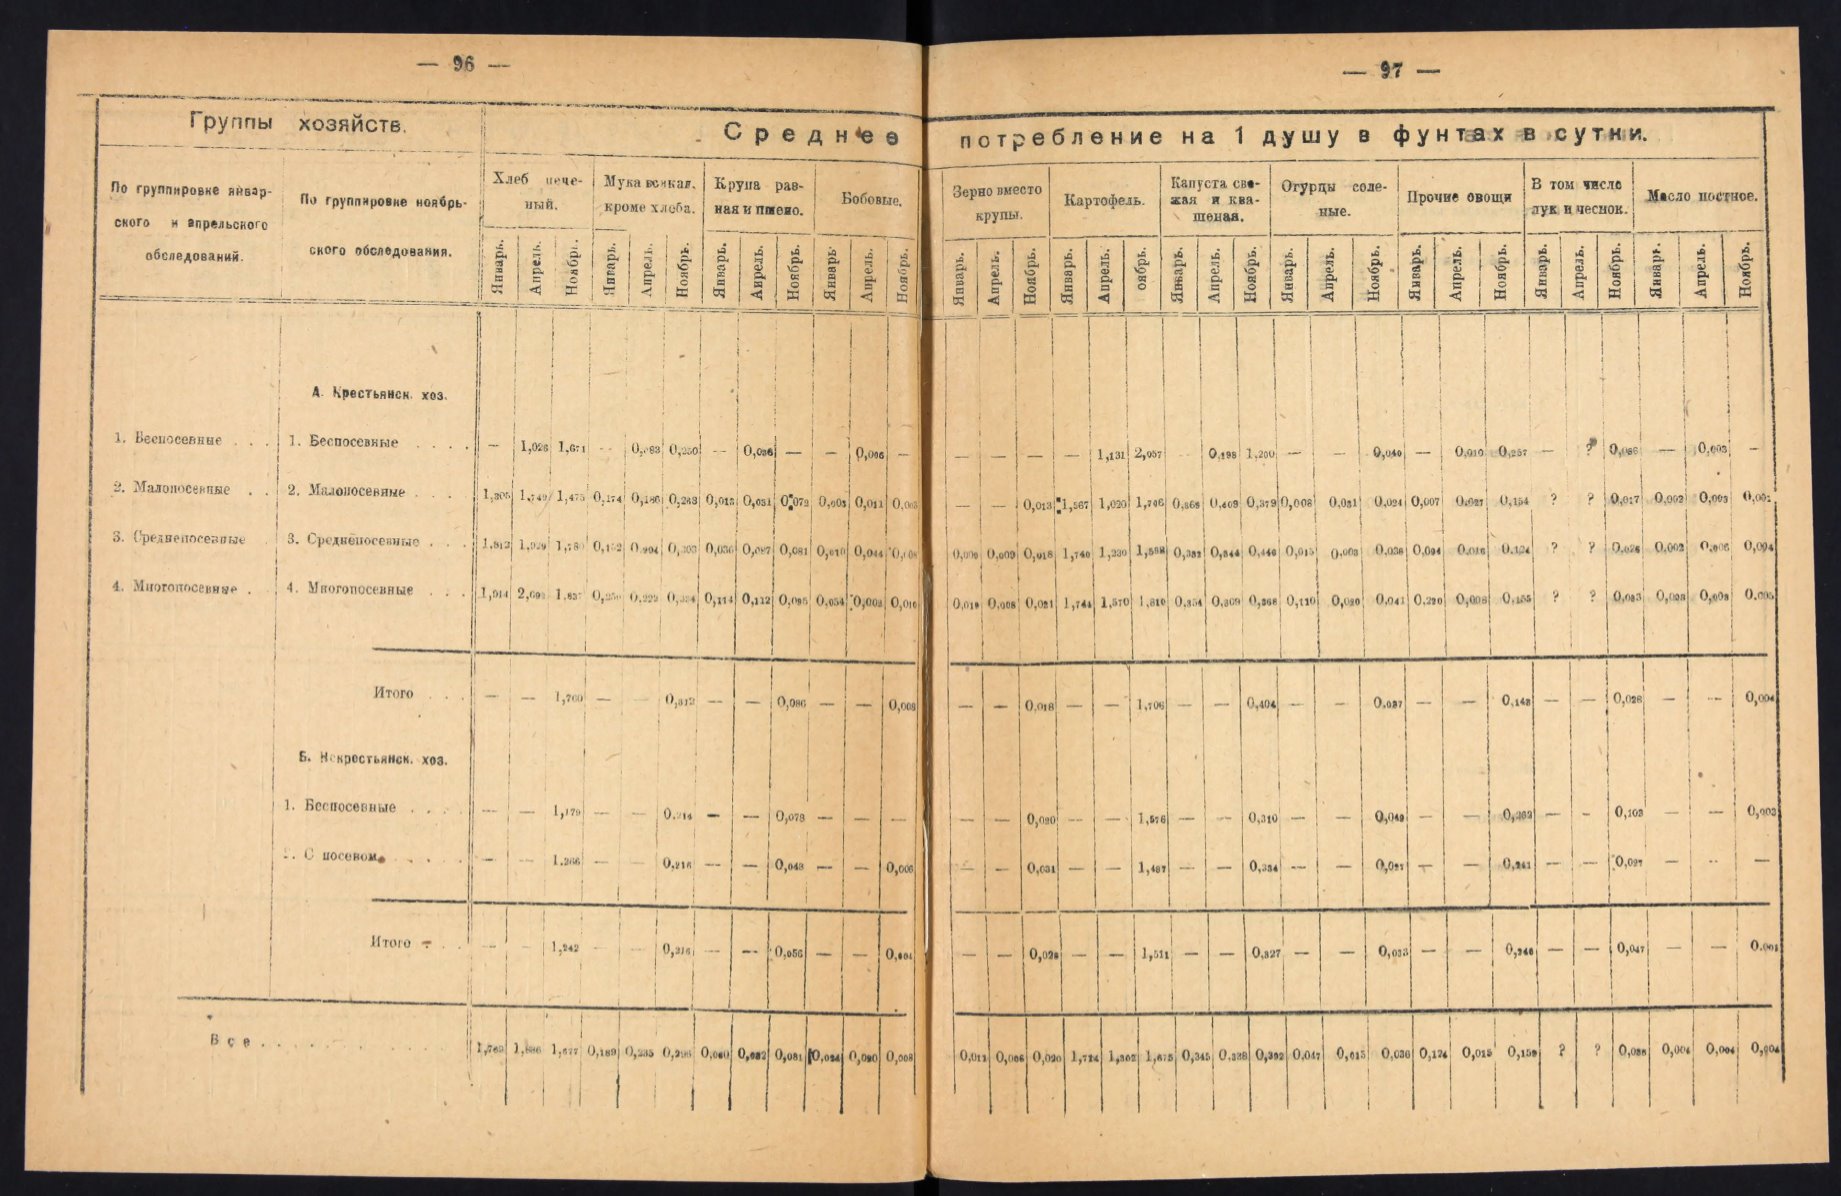 — 96 —
Группы хозяйств.
Среднее
По группировке январ-
ского и апрельского
обследований.
По группировке ноябрь-
ского обследования.
Хлеб пече-
ный.
Мука всякая,
кроме хлеба.
Крупа раз-
ная и пшено.
Бобовые.
Январь. Апрель. Ноябрь. Январь. Апрель. Ноябрь. Январь. Апрель. Ноябрь. Январь Апрель. Ноябрь.
А. Крестьянск. хоз.
1. Беспосевные . . . 1. Беспосевные . . . . — 1,026 1,671 — 0,250 — 0,036 — — 0,006 —
2. Малопосевные . . 2. Малопосевные . . . 1,475 0,174 0,186 0,263 0,015 0,051 0,072 0,003 0,011
3. Среднепосевные 3. Среднепосевные . . . 1,813 1,929 0,204 0,303 0,036 0,087 0,081 0,010 0,044
4. Многопосевные . 4. Многопосевные . . . 1,914 0,222 0,334 0,114 0,112 0,095 0,054 0,008 0,010
Итого . . . — — 1,760 — — 0,313 — — 0,086 — — 0,008
Б. Некрестьянск. хоз.
1. Беспосевные . . . . — — 1,179 — — 0,214 — — 0,078 — — —
2. С посевом . . . . — — 1,266 — — 0,216 — — 0,048 — — 0,006
Итого . . — — 1,242 — — 0,216 — — 0,056 — — 0,004
Все . . . . . . . . 1,886 1,677 0,189 0,235 0,296 0,060 0,082 0,081 0,024 0,020 0,008
— 97 —
потребление на 1 душу в фунтах в сутки.
Зерно вместо
крупы.
Картофель.
Капуста све-
жая и ква-
шеная.
Огурцы соле-
ные.
Прочие овощи
В том числе
лук и чеснок.
Масло постное.
Январь. Апрель. Ноябрь. Январь. Апрель. оябрь. Январь. Апрель. Ноябрь. Январь. Апрель. Ноябрь. Январь. Апрель. Ноябрь. Январь. Апрель. Ноябрь. Январь. Апрель. Ноябрь.
— — — — 1,131 2,057 — 0,198 1,200 — — 0,040 — 0,010 0,257 — ? 0,086 — 0,003 —
— — 0,013 1,567 1,020 1,706 0,368 0,409 0,379 0,008 0,031 0,024 0,007 0,027 0,154 ? ? 0,017 0,002 0,003
0,009 0,009 0,018 1,740 1,230 1,598 0,382 0,344 0,446 0,015 0,003 0,038 0,094 0,016 0,124 ? ? 0,026 0,002 0,006 0,004
0,019 0,008 0,021 1,744 1,570 1,810 0,354 0,309 0,368 0,110 0,020 0,041 0,220 0,008 0,155 ? ? 0,033 0,008 0,003 0,005
— — 0,018 — — 1,706 — — 0,404 — — 0,037 — — 0,143 — — 0,028 — — 0,004
— — 0,020 — — 1,576 — — 0,310 — — 0,049 — — — — 0,103 — — 0,003
— — 0,031 — — 1,487 — — 0,334 — — 0,027 — — 0,241 — — 0,027 — — —
— — 0,028 — — 1,511 — — 0,327 — — 0,033 — — 0,246 — — 0,047 — — 0,001
0,013 0,006 0,020 1,724 1,302 1,675 0,345 0,338 0,392 0,047 0,015 0,036 0,124 0,015 0,159 ? ? 0,004 0,004 0,004